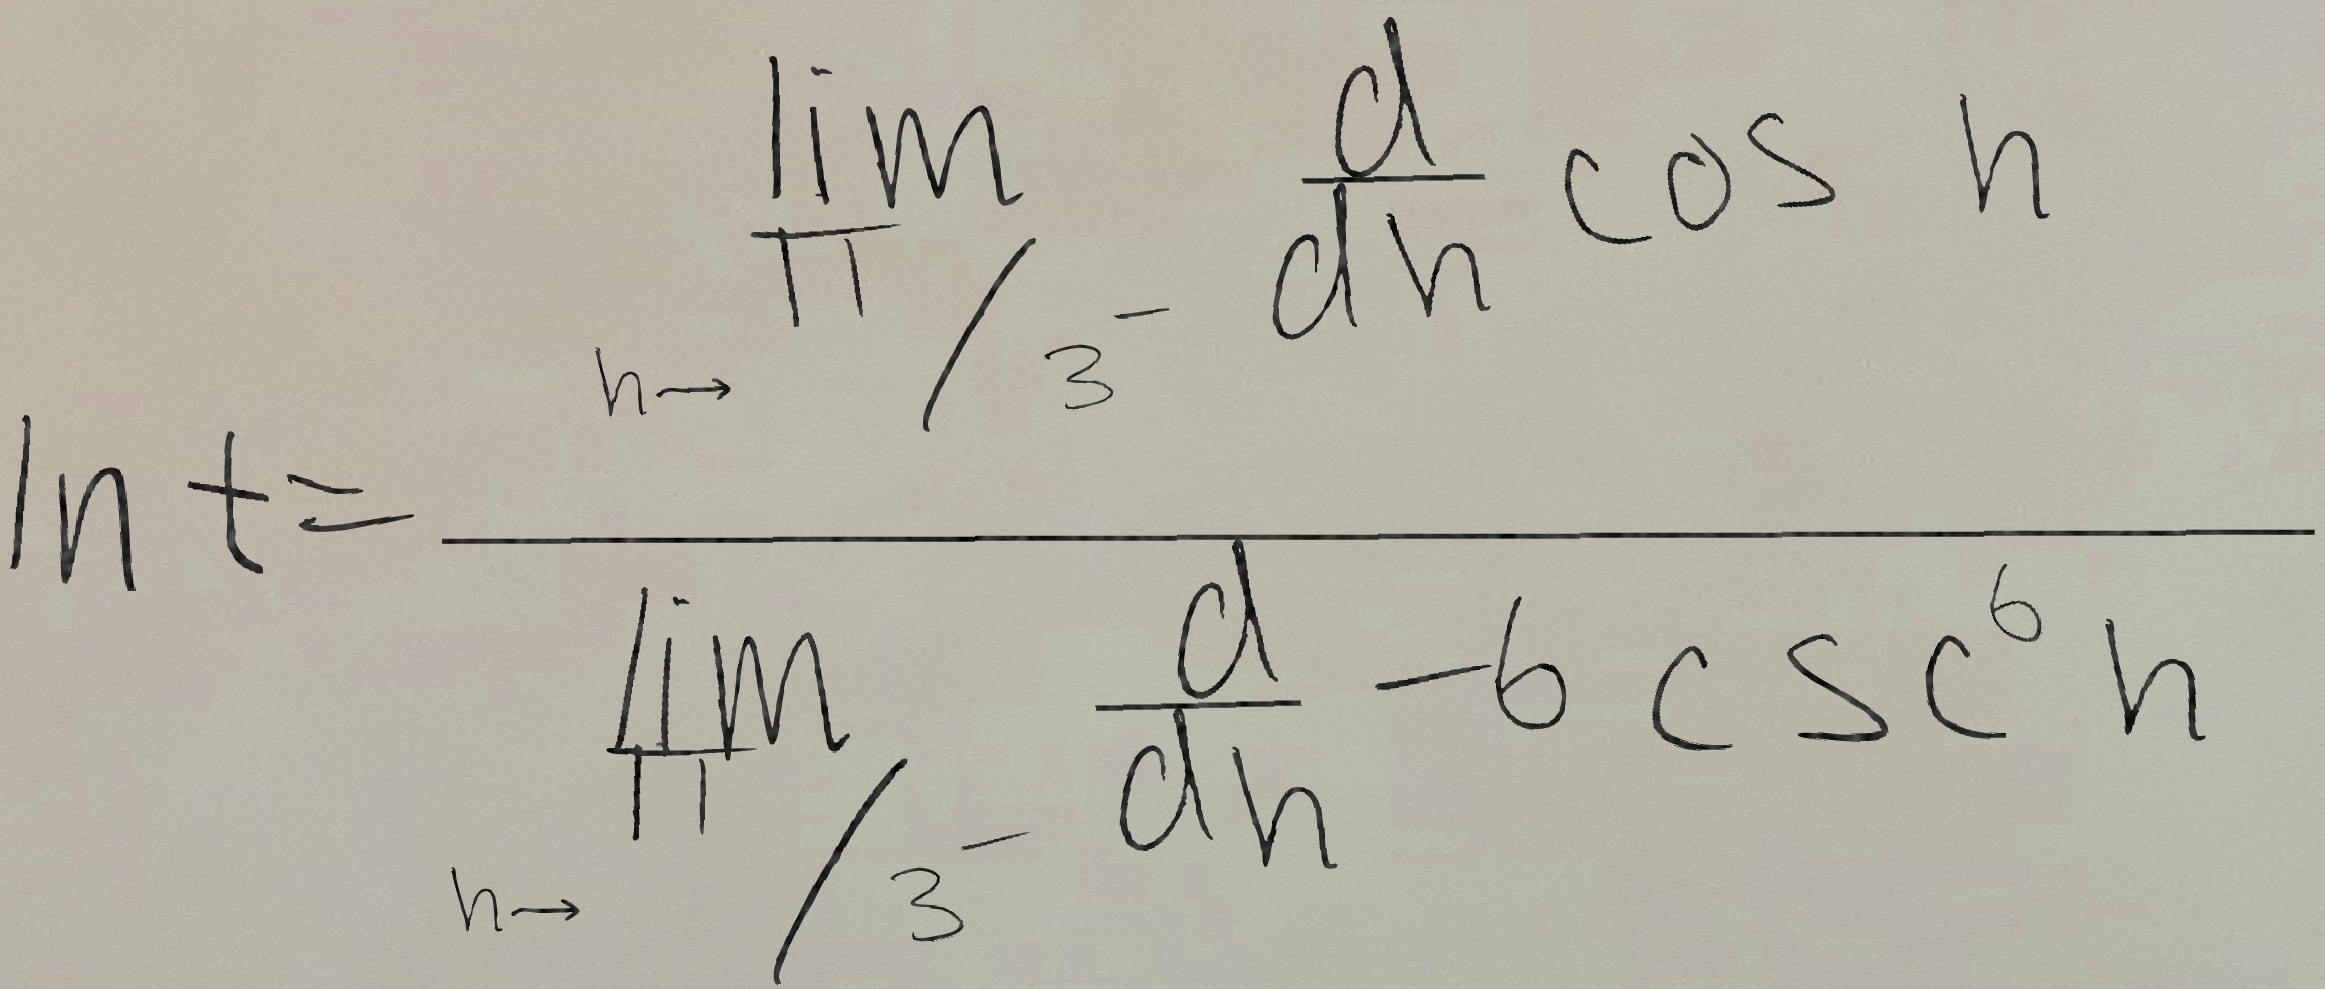 \ln t = \frac{\lim_{h \to \pi/3^-} \frac{d}{dh} \cos h}{\lim_{h \to \pi/3^-} \frac{d}{dh} -6 \csc^6 h}